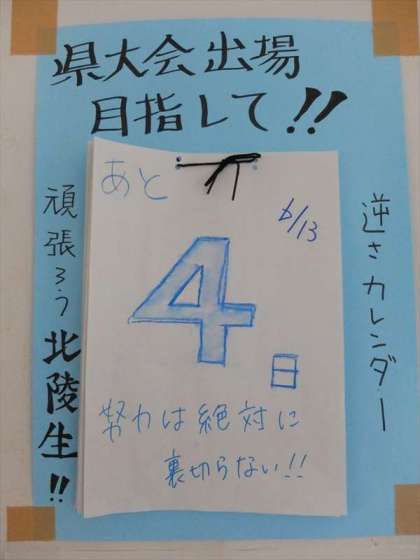 県大会出場
目指して!!
逆さカレンダー
あと
6/13
4日
努力は絶対に
裏切らない!!
頑張ろう北陵生!!